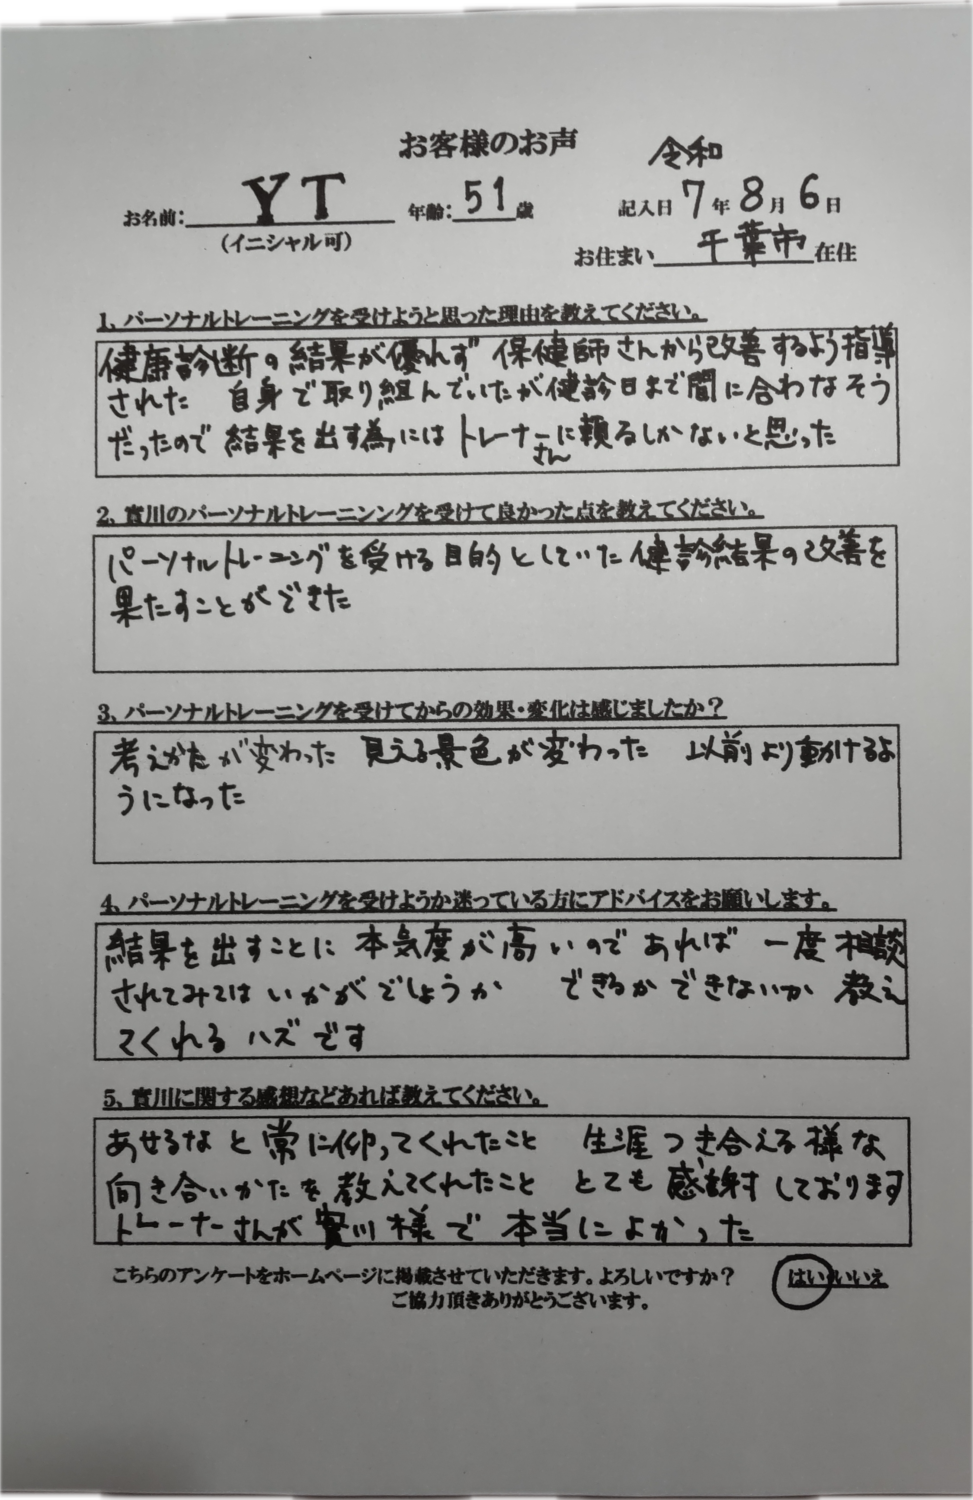 お客様のお声
令和
お名前: YT 年齢: 51 歳 記入日 7 年 8 月 6 日
(イニシャル可)
お住まい 千葉市 在住
1、パーソナルトレーニングを受けようと思った理由を教えてください。
健康診断の結果が優れず 保健師さんから改善するよう指導
された 自身で取り組んでいたが健診日まで間に合わなそう
だったので 結果を出す為には トレーナーさんに頼るしかないと思った
2、實川のパーソナルトレーニンングを受けて良かった点を教えてください。
パーソナルトレーニングを受ける目的としていた 健診結果の改善を
果たすことができた
3、パーソナルトレーニングを受けてからの効果・変化は感じましたか？
考えかたが変わった 見える景色が変わった 以前より動けるよ
うになった
4、パーソナルトレーニングを受けようか迷っている方にアドバイスをお願いします。
結果を出すことに 本気度が高いのであれば 一度相談
されてみてはいかがでしょうか できるかできないか 教え
てくれるハズです
5、實川に関する感想などあれば教えてください。
あせるなと常に仰ってくれたこと 生涯つき合える様な
向き合いかたを教えてくれたこと とても感謝しております
トレーナーさんが實川様で本当によかった
こちらのアンケートをホームページに掲載させていただきます。よろしいですか？ はい・いいえ
ご協力頂きありがとうございます。